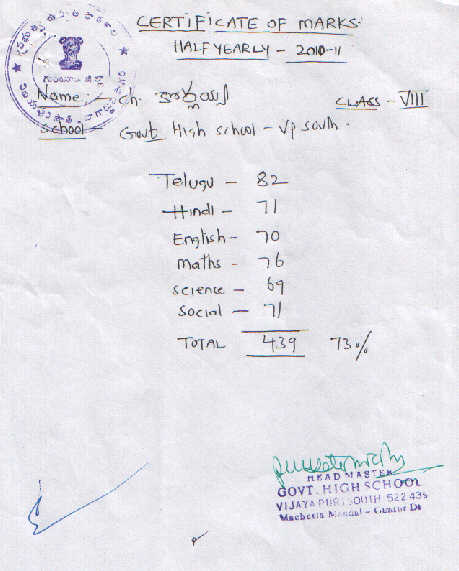 CERTIFICATE OF MARKS.
HALF YEARLY - 2010-11
Name: - Ch.
CLASS - VIII
School Govt High school - Vp South.
Telugu - 82
Hindi - 71
English - 70
Maths - 76
Science - 69
Social - 71
TOTAL 439 73%
HEAD MASTER
GOVT. HIGH SCHOOL
VIJAYAPURI SOUTH 522 439
Macherla Mandal - Guntur Dt